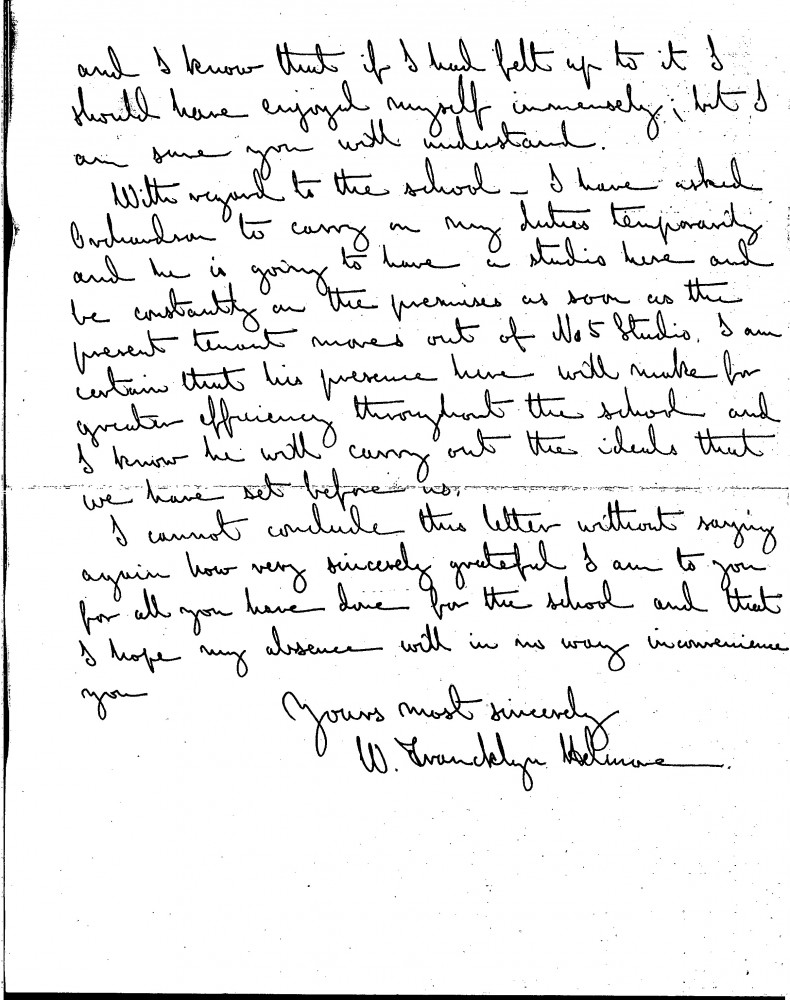 and I know that if I had felt up to it I
should have enjoyed myself immensely; but I
am sure you will understand.
With regard to the school – I have asked
Orchardson to carry on my duties temporarily
and he is going to have a studio here and
be constantly on the premises as soon as the
present tenant moves out of No 5 Studio. I am
certain that his presence here will make for
greater efficiency throughout the school and
I know he will carry out the ideals that
we have set before us.
I cannot conclude this letter without saying
again how very sincerely grateful I am to you
for all you have done for the school and that
I hope my absence will in no way inconvenience
you
Yours most sincerely
W. Francklyn Helmore.